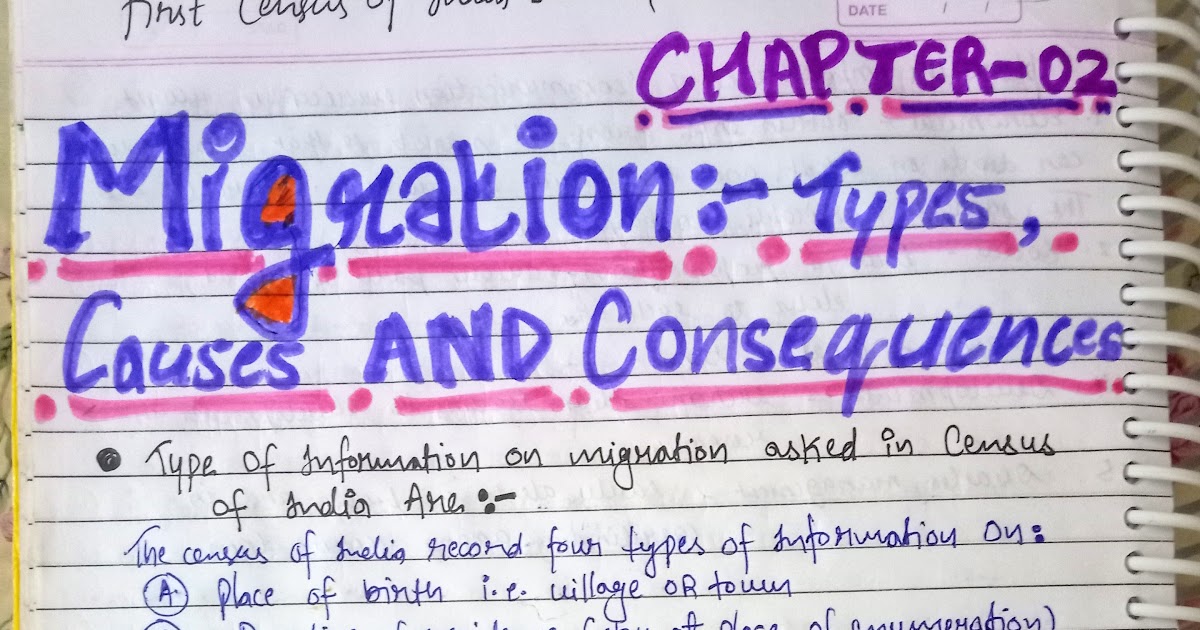 First Census of
DATE / /
CHAPTER-02
Migration:- Types,
Causes AND Consequences
Type of Information on migration asked in Census
of India Are:-
The census of India record four types of Information on:
A. Place of birth i.e. village OR town
place of enumeration)